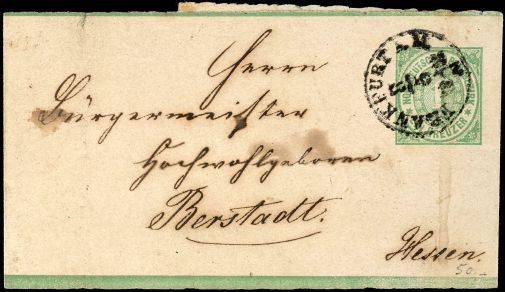 Herrn
Bürgermeister
Hochwohlgeboren
Berstadt.
Hessen.
50.-
FRANKFURT A. M.
NORDDEUTSCHER
KREUZER